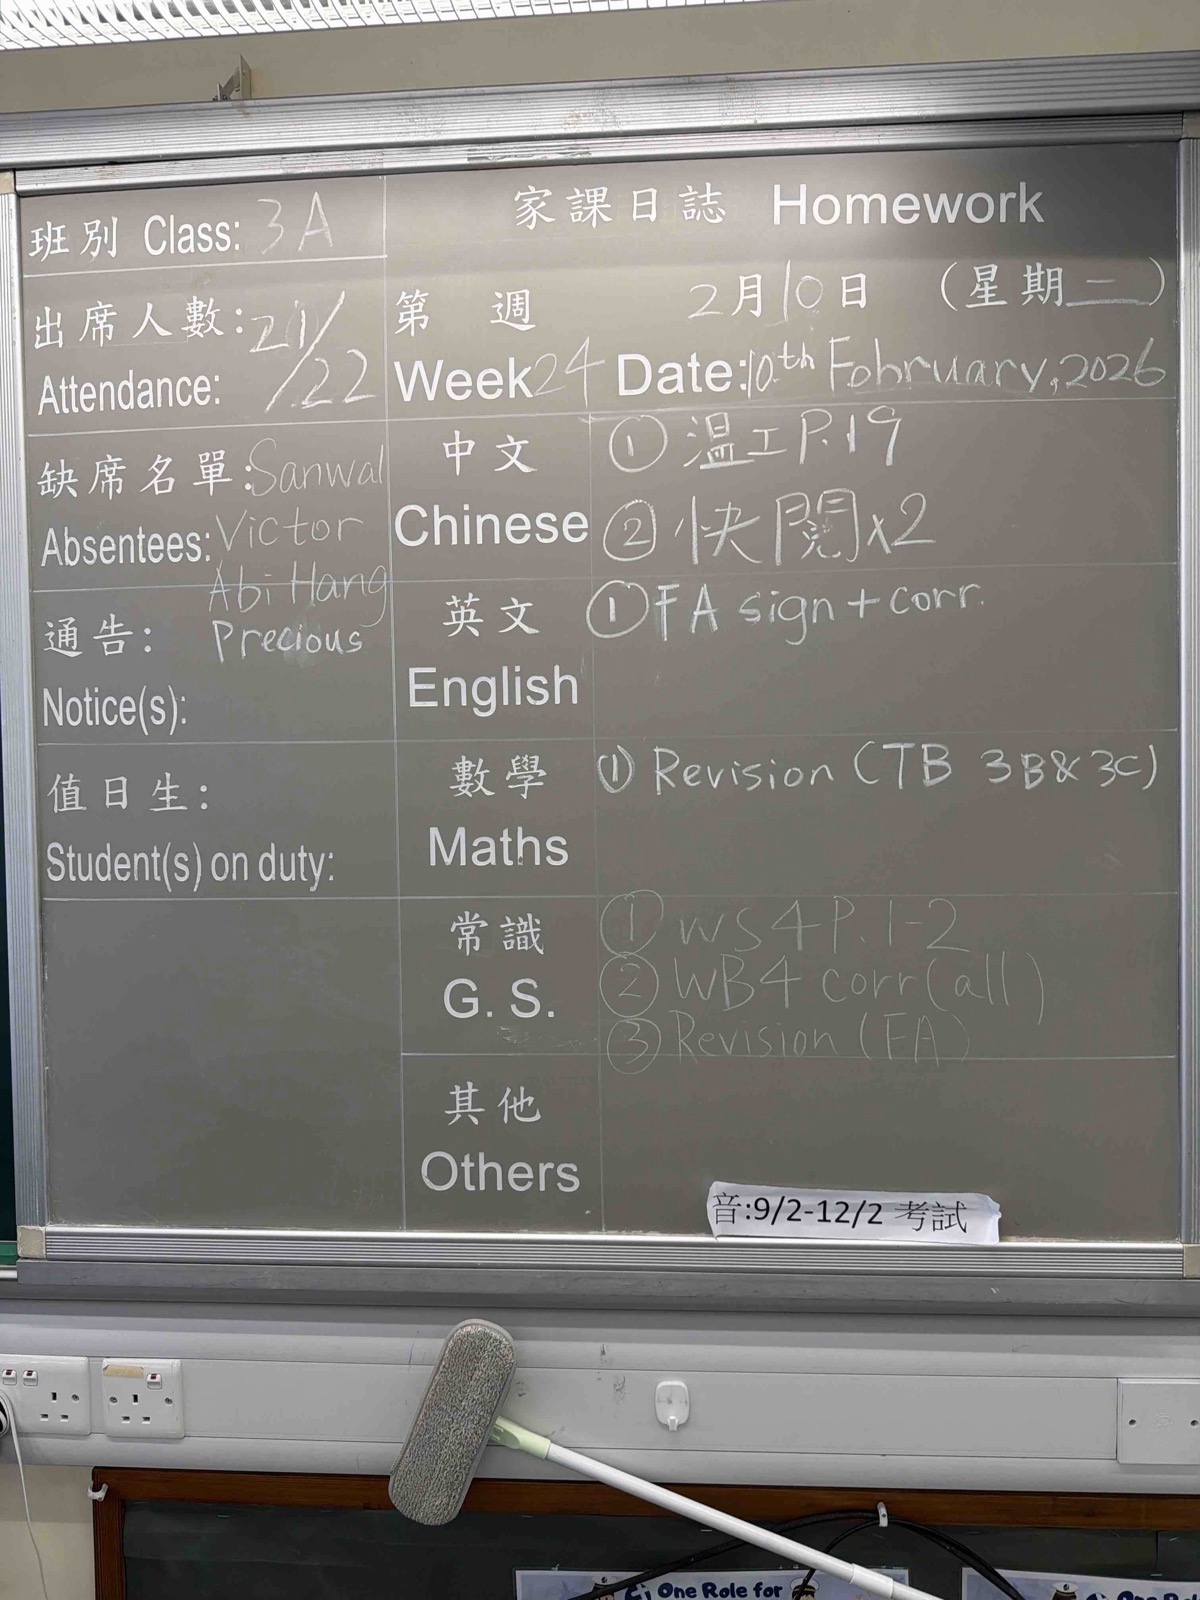 班別 Class: 3A
家課日誌 Homework
出席人數: 21/22
Attendance:
第 週 2月10日 (星期二)
Week 24 Date: 10th February, 2026
缺席名單: Sanwal
Absentees: Victor
Abi Hang
Precious
通告:
Notice(s):
值日生:
Student(s) on duty:
中文
Chinese
① 温工P.19
② 快閱x2
英文
English
① FA sign + corr.
數學
Maths
① Revision (TB 3B & 3C)
常識
G. S.
① WS4 P.1-2
② WB4 corr(all)
③ Revision (FA)
其他
Others
音:9/2-12/2 考試
One Role for